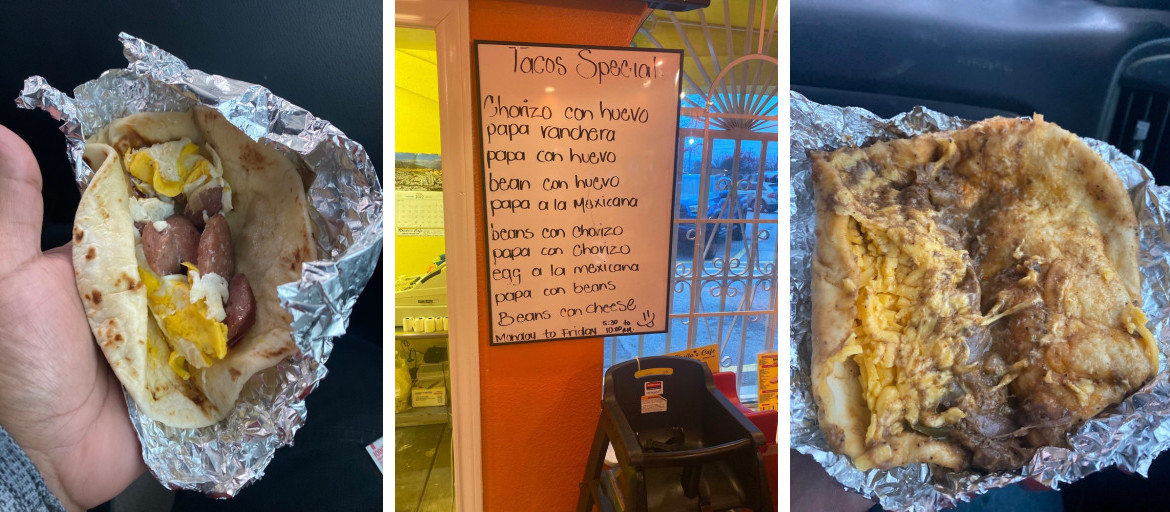 Tacos Special
Chorizo con huevo
papa ranchera
papa con huevo
bean con huevo
papa a la Mexicana
beans con Chorizo
papa con Chorizo
egg a la mexicana
papa con beans
Beans con cheese
Monday to Friday 5:30 to 10:00 AM
Cafe